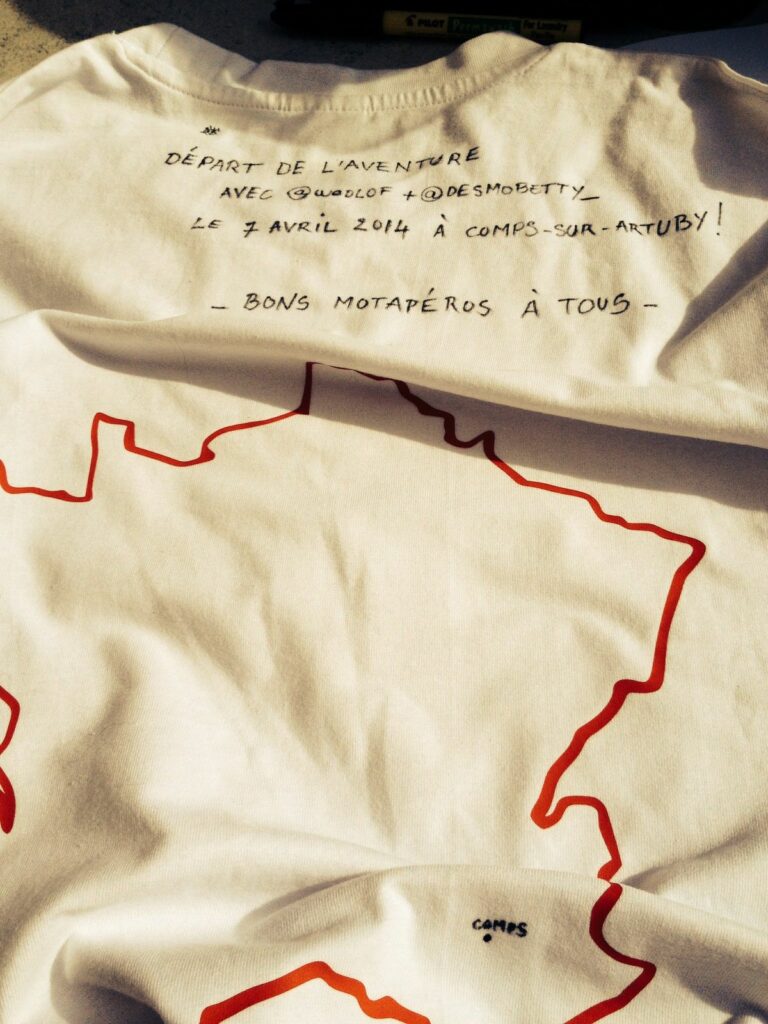 PILOT Permawriter for Laundry
DÉPART DE L'AVENTURE
AVEC @WOOLOF + @DESMOBETTY_
LE 7 AVRIL 2014 À COMPS-SUR-ARTUBY!
- BONS MOTAPÉROS À TOUS -
COMPS